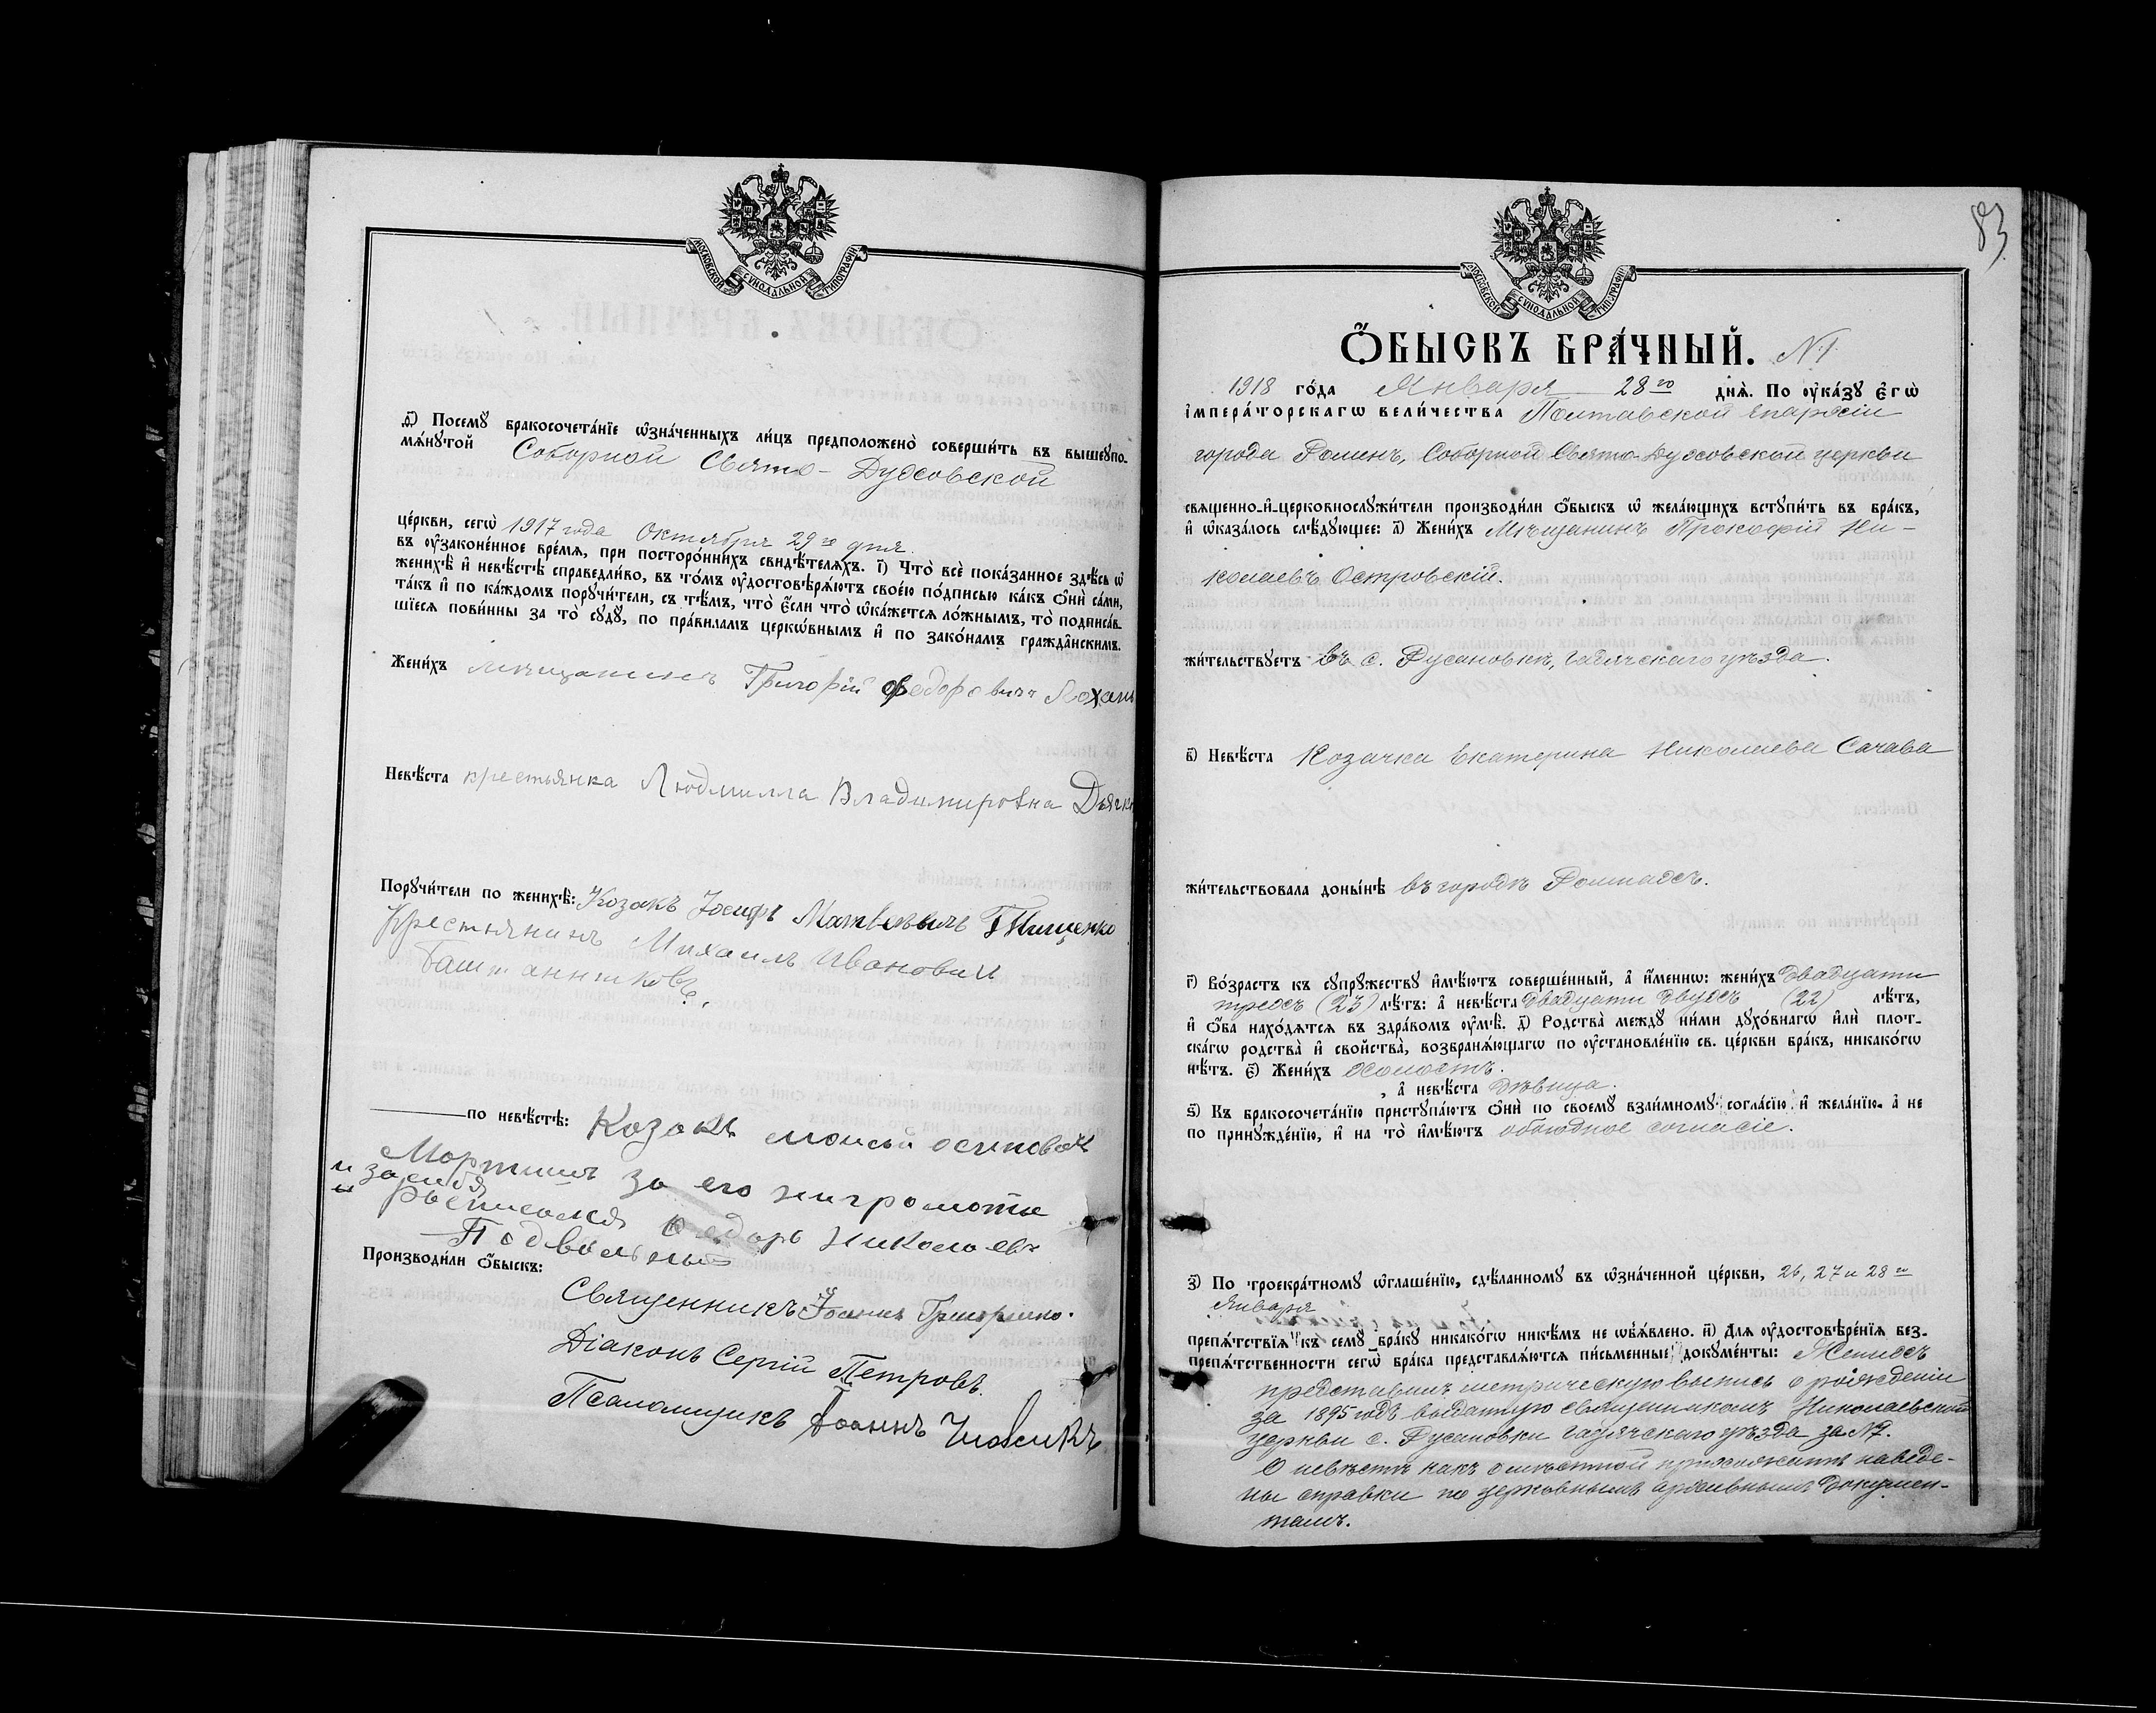 МОСКОВСКОЙ СѴНОДАЛЬНОЙ ТИПОГРАФІИ
д҃) Посемꙋ̀ бракосочета́нїе ѡ҆зна́ченныхъ ли́цъ предположено̀ соверши́ть въ вышеꙋпо-
мѧ́нꙋтой Соборной Свято-Духовской
це́ркви, сегѡ̀ 1917 года Октября 29го дня.
въ ᲂу҆законе́нное вре́мѧ, при посторо́ннихъ свидѣ́телѧхъ. і҃) Что̀ всѐ пока́занное здѣ́сь ѡ҆
женихѣ̀ и҆ невѣ́стѣ справедли́во, въ то́мъ ᲂу҆достовѣрѧ́ютъ свое́ю по́дписью ка́къ ѻ҆нѝ са́ми,
та́къ и҆ по ка́ждомъ порꙋчи́тели, съ тѣ́мъ, что̀ є҆́сли что̀ ѡ҆ка́жетсѧ ло́жнымъ, то̀ подписа́в-
шїесѧ пови́нны за то̀ сꙋдꙋ̀, по пра́виламъ церкѡ́внымъ и҆ по зако́намъ гражда̑нскимъ.
Жени́хъ мещанинъ Григорій Федоровичъ Лохань
Невѣ́ста крестьянка Людмилла Владимировна
Порꙋчи́тели по женихѣ̀: Козакъ Іосифъ Матвѣевичъ Тищенко
Крестьянинъ Михаилъ Ивановичъ
Баштанниковъ.
по невѣ́стѣ: Козакъ моисей осиповъ
за его
и за себя росписался Федоръ Николаевъ
Подвальный
Производи́ли ѻ҆́быскъ:
Священникъ Іоаннъ
Діаконъ Сергій Петровъ.
Псаломщикъ Іоаннъ Чижикъ
83
МОСКОВСКОЙ СѴНОДАЛЬНОЙ ТИПОГРАФІИ
Ѻ҆́БЫСКЪ БРА́ЧНЫЙ. №1.
1918 го́да Января 28го днѧ̀. По ᲂу҆ка́зꙋ є҆гѡ̀
і҆мпера́торскагѡ вели́чества Полтавской епархіи
города Роменъ, Соборной Свято-Духовской церкви
свѧщенно-и҆-церковнослꙋжи́тели производи́ли ѻ҆́быскъ ѡ҆ жела́ющихъ встꙋпи́ть въ бра́къ,
и҆ ѡ҆каза́лось слѣ́дꙋющее: а҃) Жени́хъ Мѣщанинъ Прокофій Ни-
колаевъ Островскій.
жи́тельствꙋетъ въ с. Русановкѣ, Гадячскаго уѣзда.
в҃) Невѣ́ста Козачка Екатерина Николаева Сачава
жи́тельствовала доны́нѣ въ городѣ Ромнахъ.
г҃) Во́зрастъ къ сꙋпрꙋ́жествꙋ и҆мѣ́ютъ соверше́нный, а҆ и҆́меннѡ: жени́хъ двадцати
трехъ (23) лѣ́тъ: а҆ невѣ́ста двадцати двухъ (22) лѣ́тъ,
и҆ ѻ҆́ба нахо́дѧтсѧ въ здра́вомъ ᲂу҆мѣ̀. д҃) Родства̀ междꙋ̀ ни́ми дꙋхо́внагѡ и҆лѝ плот-
ска́гѡ родства̀ и҆ свойства̀, возбранѧ́ющагѡ по ᲂу҆становле́нїю св. це́ркви бра́къ, никако́гѡ
нѣ́тъ. є҃) Жени́хъ холостъ.
, а҆ невѣ́ста дѣвица.
ѕ҃) Къ бракосочета́нїю пристꙋпа́ютъ ѻ҆нѝ по своемꙋ̀ взаи́мномꙋ согла́сїю и҆ жела́нїю. а҆ не
по принꙋжде́нїю, и҆ на то̀ и҆мѣ́ютъ обоюдное согласіе.
з҃) По троекра́тномꙋ ѡ҆глаше́нїю, сдѣ́ланномꙋ въ ѡ҆зна́ченной це́ркви, 26, 27 и 28го
Января
препѧ́тствїѧ къ семꙋ̀ бра́кꙋ никако́гѡ никѣ́мъ не ѡ҆б̾ѧ́влено. и҃) Для ᲂу҆достовѣре́нїѧ без-
препѧ́тственности сегѡ̀ бра́ка представлѧ́ютсѧ пи́сьменные докꙋме́нты: Женихъ
представилъ метрическую выпись о рожденіи
за 1895 годъ выданную священникомъ Николаевской
церкви с. Русановки Гадячскаго уѣзда за №7.
О невѣстѣ какъ о мѣстной прихожанкѣ наведе-
ны справки по церковнымъ архивнымъ докумен-
тамъ.